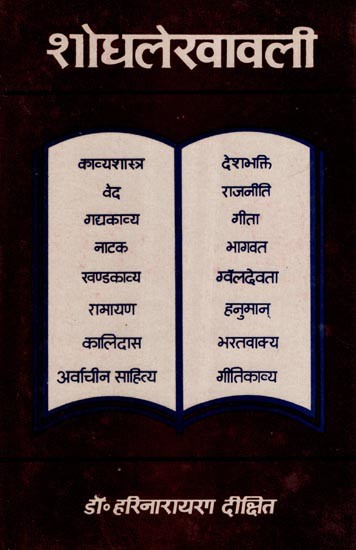 शोधलेखावली
काव्यशास्त्र
वेद
गद्यकाव्य
नाटक
खण्डकाव्य
रामायण
कालिदास
अर्वाचीन साहित्य
देशभक्ति
राजनीति
गीता
भागवत
ग्वॅलदेवता
हनुमान्
भरतवाक्य
गीतिकाव्य
डॉ॰ हरिनारायण दीक्षित